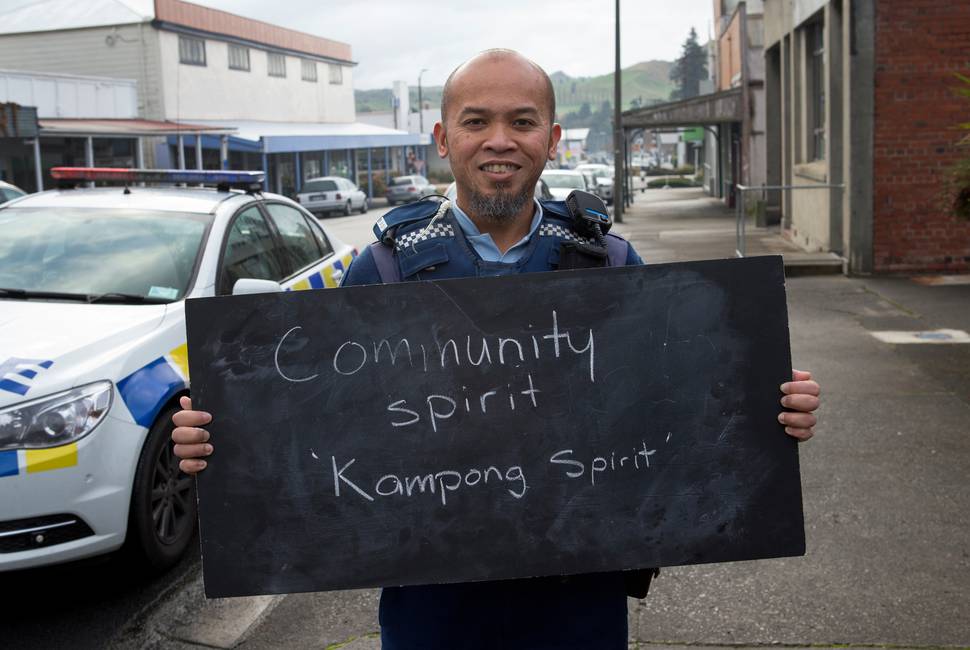 Community
spirit
'Kampong Spirit'